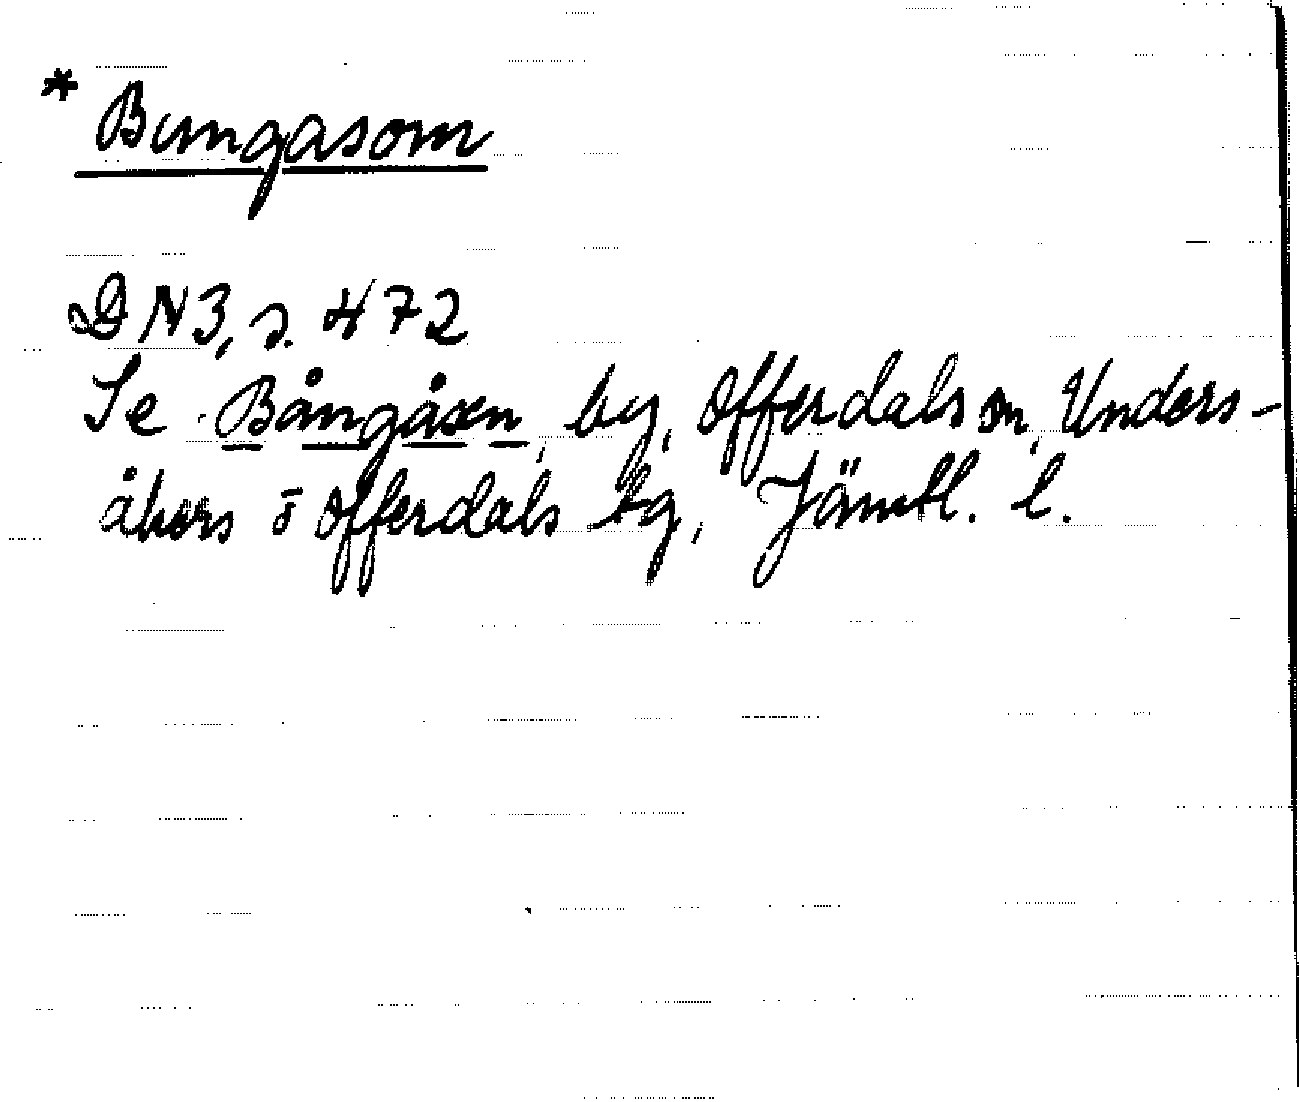 * Bungasom
DN3, s. 472
Se Bångåsen, by, Offerdals sn, Unders-
åkers o Offerdals tg, Jämtl. l.